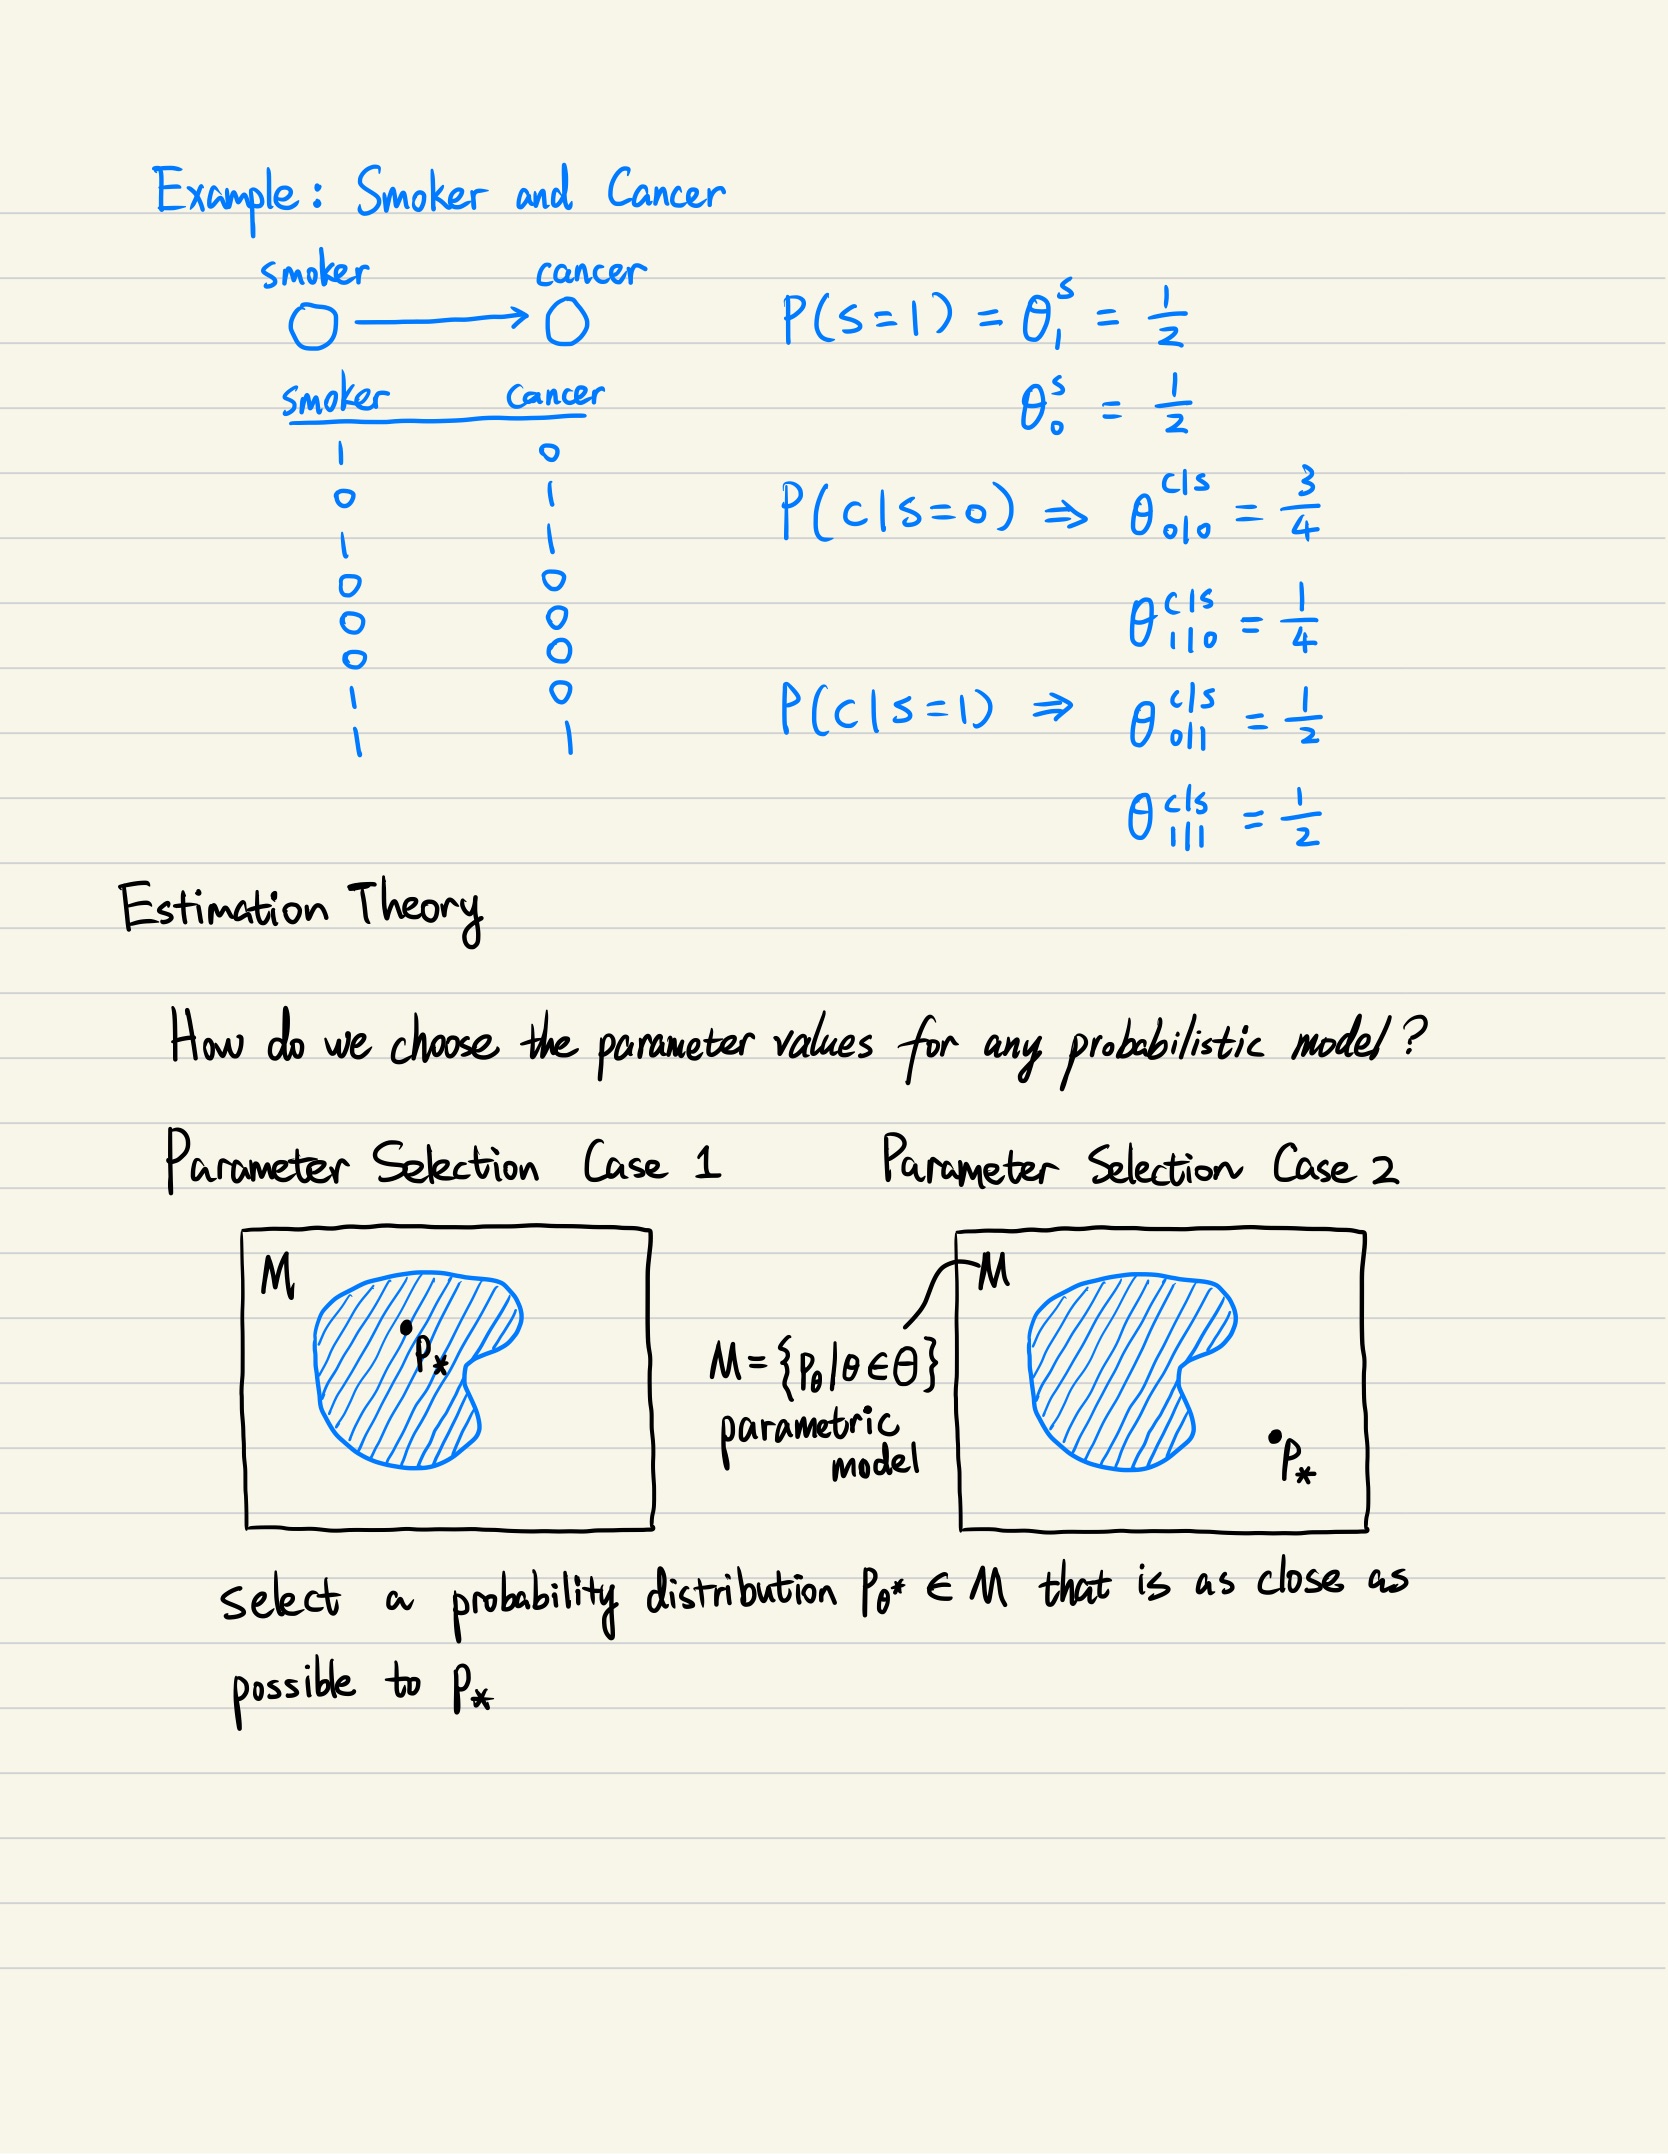 Example: Smoker and Cancer
smoker cancer
smoker cancer
1 0
0 1
1 1
0 0
0 0
0 0
1 0
1 1
P(s=1) = θ₁ˢ = 1/2
θ₀ˢ = 1/2
P(c|s=0) ⇒ θ_{0|0}^{c|s} = 3/4
θ_{1|0}^{c|s} = 1/4
P(c|s=1) ⇒ θ_{0|1}^{c|s} = 1/2
θ_{1|1}^{c|s} = 1/2
Estimation Theory
How do we choose the parameter values for any probabilistic model?
Parameter Selection Case 1
M
P_*
Parameter Selection Case 2
M
M = {p_θ | θ ∈ Θ}
parametric
model
P_*
select a probability distribution P_{θ*} ∈ M that is as close as
possible to P_*